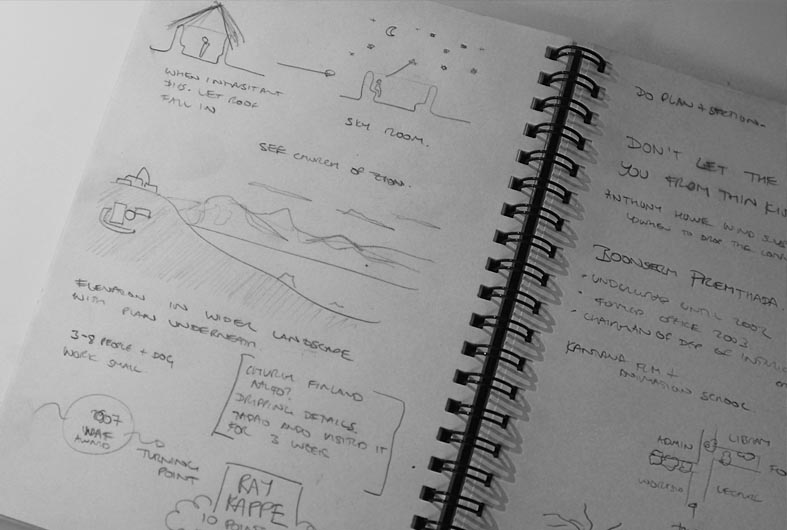 WHEN INHABITANT
DIES. LET ROOF
FALL IN
SKY ROOM.
SEE CHURCH OF
ELEVATION IN WIDER LANDSCAPE
WITH PLAN UNDERNEATH.
3-8 PEOPLE + DOG
WORK SMALL
CHURCH FINLAND
DRIPPING DETAILS.
TADAO ANDO VISITED IT
FOR 3 WEEK
2007
AWARD
TURNING
POINT
RAY
KAPPE
10
DO PLAN + SECTIONS.
DON'T LET THE
YOU FROM THIN
ANTHONY HOWE WIND
WHEN TO DROP THE
BOONSERM PREMTHADA.
• UNDERWOOD UNTIL 2002
• OFFICE 2003.
• CHAIRMAN OF DEP OF
KANTANA FILM +
ANIMATION SCHOOL
ADMIN
LIBRARY
LECTURE